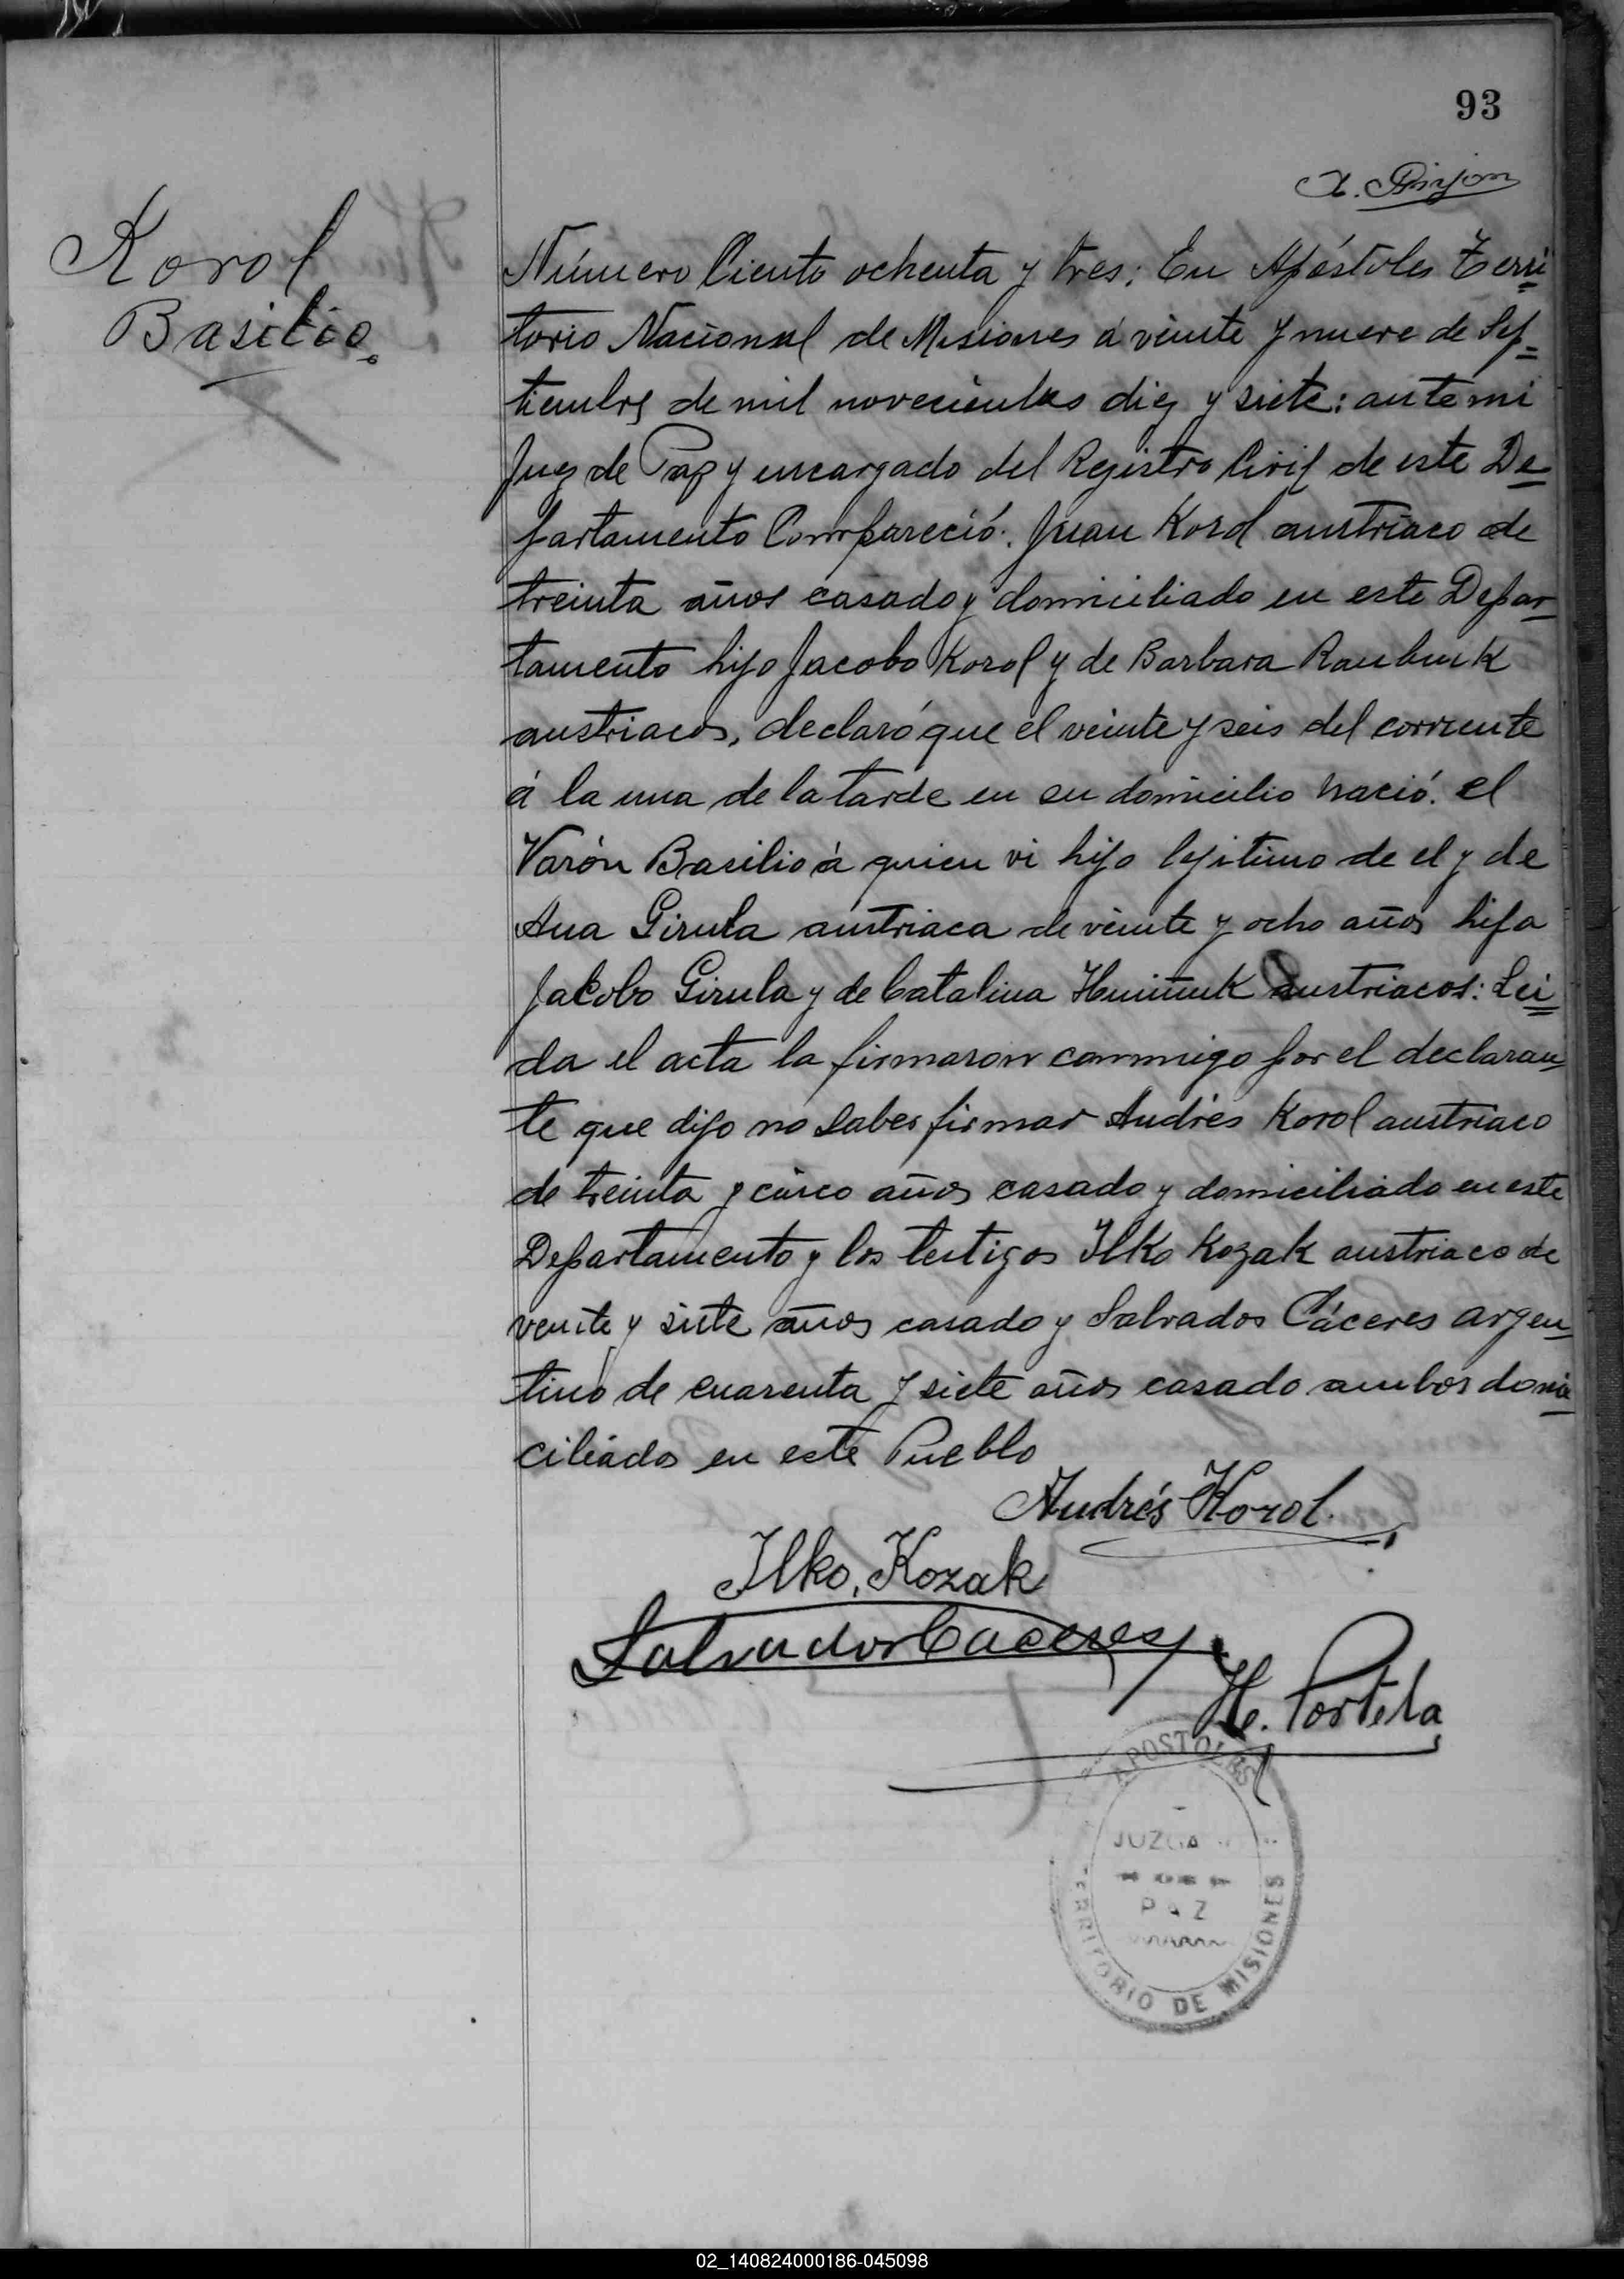 93
Korol
Basilio
Número Ciento ochenta y tres: En Apóstoles Terri
torio Nacional de Misiones á veinte y nueve de Sep=
tiembre de mil novecientos diez y siete: ante mi
Juez de Paz y encargado del Registro Civil de este De
partamento Compareció: Juan Korol austriaco de
treinta años casado y domiciliado en este Depar
tamento hijo Jacobo Korol y de Barbara
austriacos, declaró que el veinte y seis del corriente
á la una de la tarde en su domicilio nació el
Varón Basilio á quien vi hijo lejitimo de el y de
Ana Girula austriaca de veinte y ocho años hija
Jacobo Girula y de Catalina austriacos: Lei
da el acta la firmaron conmigo por el declaran
te que dijo no saber firmar Andrés Korol austriaco
de treinta y cinco años casado y domiciliado en este
Departamento y los testigos Ilko Kozak austriaco de
veinte y siete años casado y Salvador Cáceres argen
tino de cuarenta y siete años casado ambos domi
ciliados en este Pueblo
Andrés Korol.
Ilko, Kozak
Salvador Caceres
H. Portela
APOSTOLES
JUZGA
PAZ
TERRITORIO DE MISIONES
02_140824000186-045098